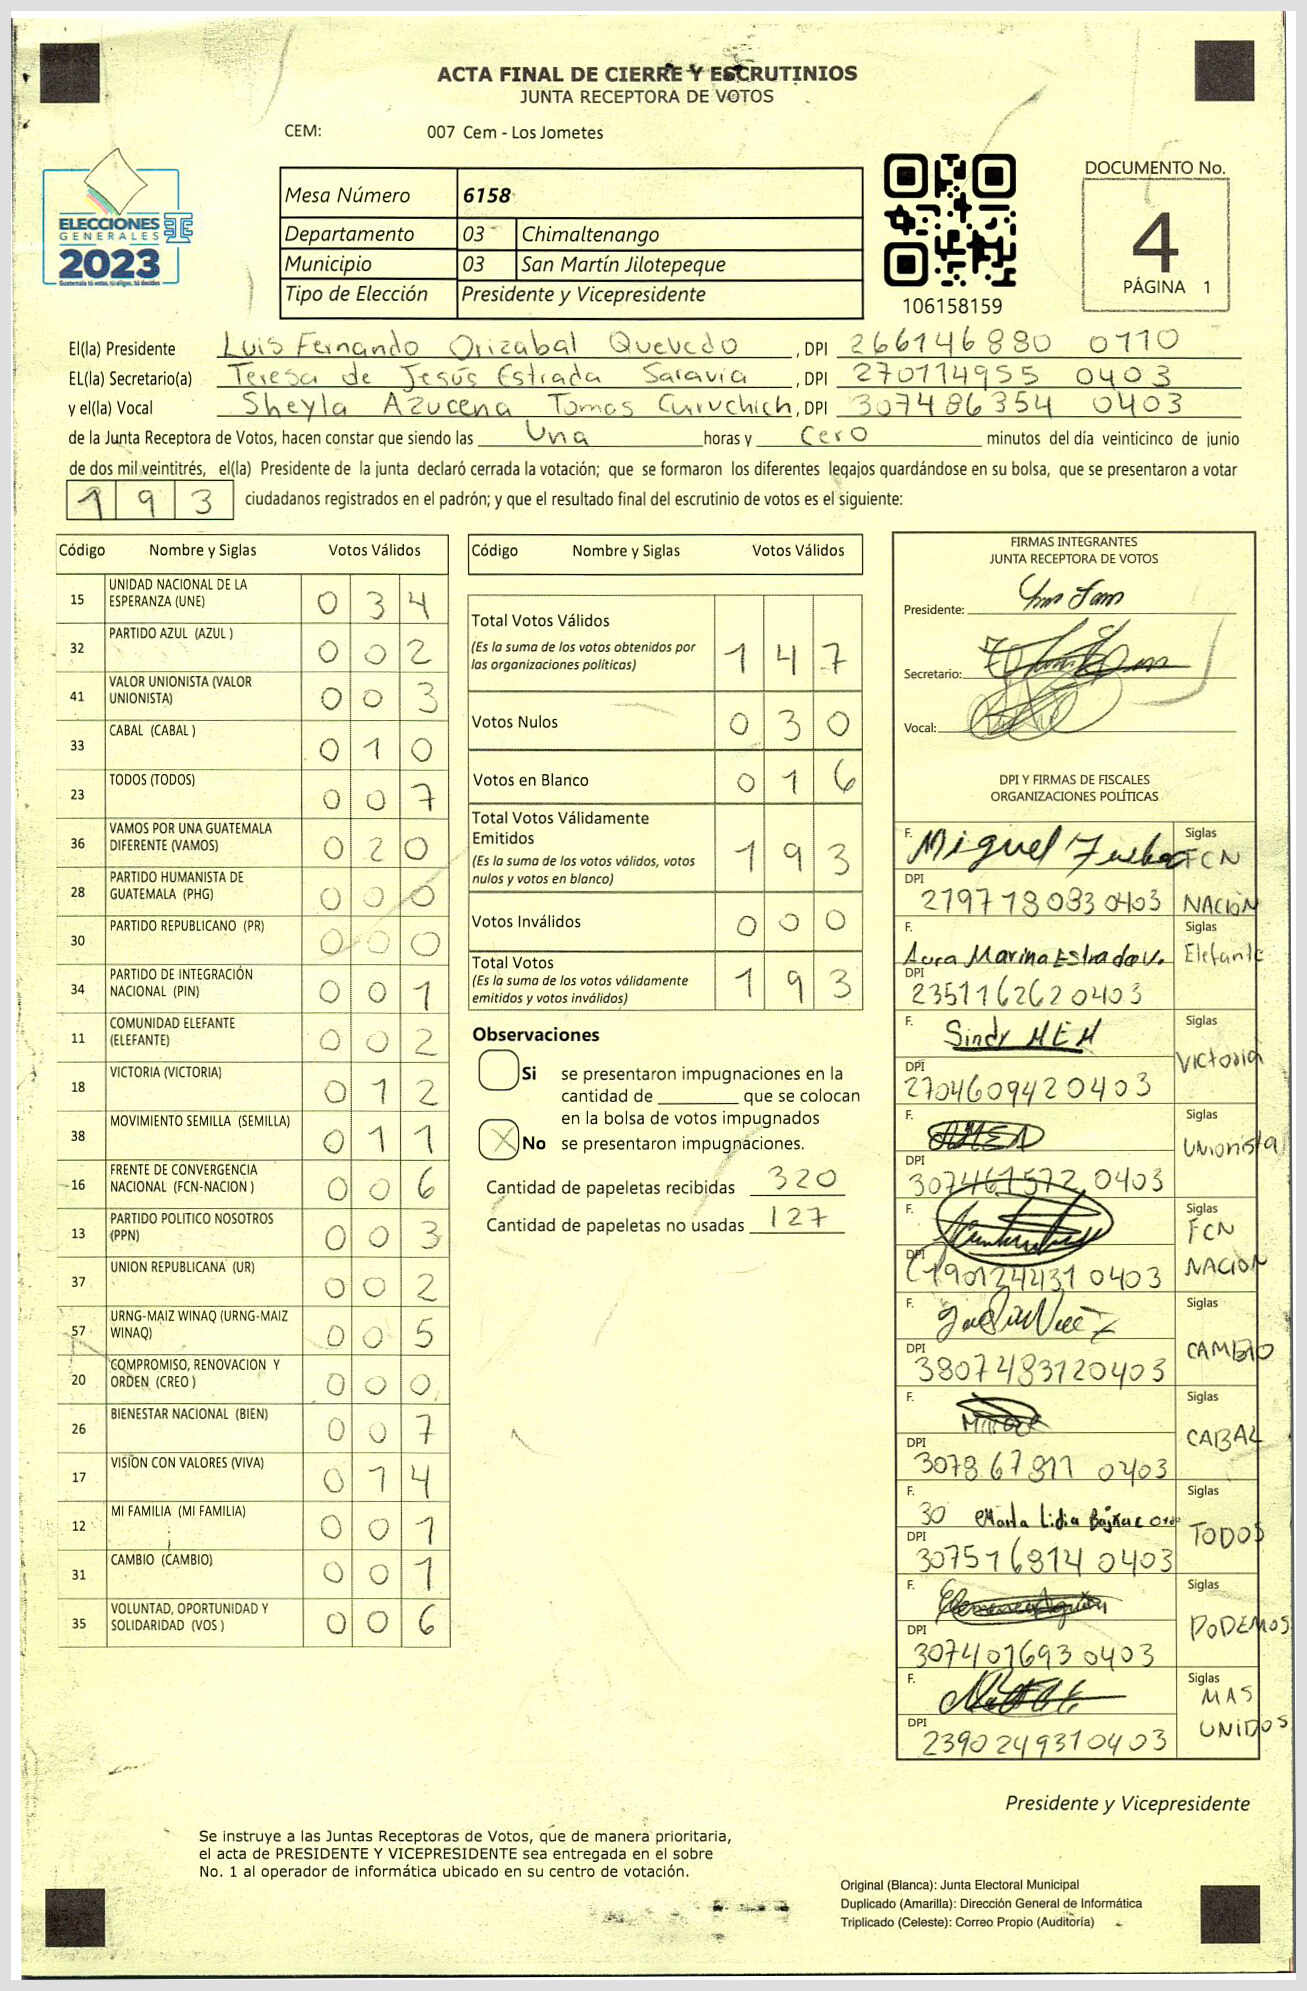 ACTA FINAL DE CIERRE Y ESCRUTINIOS
JUNTA RECEPTORA DE VOTOS
CEM: 007 Cem - Los Jometes
ELECCIONES
GENERALES
2023
Mesa Número 6158
Departamento 03 Chimaltenango
Municipio 03 San Martín Jilotepeque
Tipo de Elección Presidente y Vicepresidente
106158159
DOCUMENTO No.
4
PÁGINA 1
El(la) Presidente Luis Fernando Orizabal Quevedo, DPI 266146880 0110
EL(la) Secretario(a) Teresa de Jesús Estrada Saravia, DPI 270114955 0403
y el(la) Vocal Sheyla Azucena Tomas Curuchich, DPI 307486354 0403
de la Junta Receptora de Votos, hacen constar que siendo las Una horas y Cero minutos del día veinticinco de junio
de dos mil veintitrés, el(la) Presidente de la junta declaró cerrada la votación; que se formaron los diferentes legajos quardándose en su bolsa, que se presentaron a votar
193 ciudadanos registrados en el padrón; y que el resultado final del escrutinio de votos es el siguiente:
Código Nombre y Siglas Votos Válidos
15 UNIDAD NACIONAL DE LA ESPERANZA (UNE) 034
32 PARTIDO AZUL (AZUL ) 002
41 VALOR UNIONISTA (VALOR UNIONISTA) 003
33 CABAL (CABAL ) 010
23 TODOS (TODOS) 007
36 VAMOS POR UNA GUATEMALA DIFERENTE (VAMOS) 020
28 PARTIDO HUMANISTA DE GUATEMALA (PHG) 000
30 PARTIDO REPUBLICANO (PR) 000
34 PARTIDO DE INTEGRACIÓN NACIONAL (PIN) 001
11 COMUNIDAD ELEFANTE (ELEFANTE) 002
18 VICTORIA (VICTORIA) 012
38 MOVIMIENTO SEMILLA (SEMILLA) 011
16 FRENTE DE CONVERGENCIA NACIONAL (FCN-NACION ) 006
13 PARTIDO POLITICO NOSOTROS (PPN) 003
37 UNION REPUBLICANA (UR) 002
57 URNG-MAIZ WINAQ (URNG-MAIZ WINAQ) 005
20 COMPROMISO, RENOVACION Y ORDEN (CREO ) 000
26 BIENESTAR NACIONAL (BIEN) 007
17 VISION CON VALORES (VIVA) 014
12 MI FAMILIA (MI FAMILIA) 001
31 CAMBIO (CAMBIO) 001
35 VOLUNTAD, OPORTUNIDAD Y SOLIDARIDAD (VOS ) 006
Código Nombre y Siglas Votos Válidos
Total Votos Válidos 147
(Es la suma de los votos obtenidos por
las organizaciones políticas)
Votos Nulos 030
Votos en Blanco 016
Total Votos Válidamente
Emitidos 193
(Es la suma de los votos válidos, votos
nulos y votos en blanco)
Votos Inválidos 000
Total Votos 193
(Es la suma de los votos válidamente
emitidos y votos inválidos)
Observaciones
Si se presentaron impugnaciones en la
cantidad de ________ que se colocan
en la bolsa de votos impugnados
X No se presentaron impugnaciones.
Cantidad de papeletas recibidas 320
Cantidad de papeletas no usadas 127
FIRMAS INTEGRANTES
JUNTA RECEPTORA DE VOTOS
Presidente:
Secretario:
Vocal:
DPI Y FIRMAS DE FISCALES
ORGANIZACIONES POLÍTICAS
F. Miguel Siglas FCN
DPI 279718083 0403 NACION
F. Aura Marina Estrada V. Siglas Elefante
DPI 235116262 0403
F. Sindy MEM Siglas Victoria
DPI 270460942 0403
F. Siglas Unionista
DPI 307461572 0403
F. Siglas FCN
DPI 190124231 0403 NACION
F. Siglas CAMBIO
DPI 380748312 0403
F. Siglas CABAL
DPI 307867811 0403
F. 30 Marta Lidia Siglas TODOS
DPI 307516814 0403
F. Siglas PODEMOS
DPI 307401693 0403
F. Siglas MAS
DPI 239024931 0403 UNIDOS
Presidente y Vicepresidente
Se instruye a las Juntas Receptoras de Votos, que de manera prioritaria,
el acta de PRESIDENTE Y VICEPRESIDENTE sea entregada en el sobre
No. 1 al operador de informática ubicado en su centro de votación.
Original (Blanca): Junta Electoral Municipal
Duplicado (Amarilla): Dirección General de Informática
Triplicado (Celeste): Correo Propio (Auditoría)